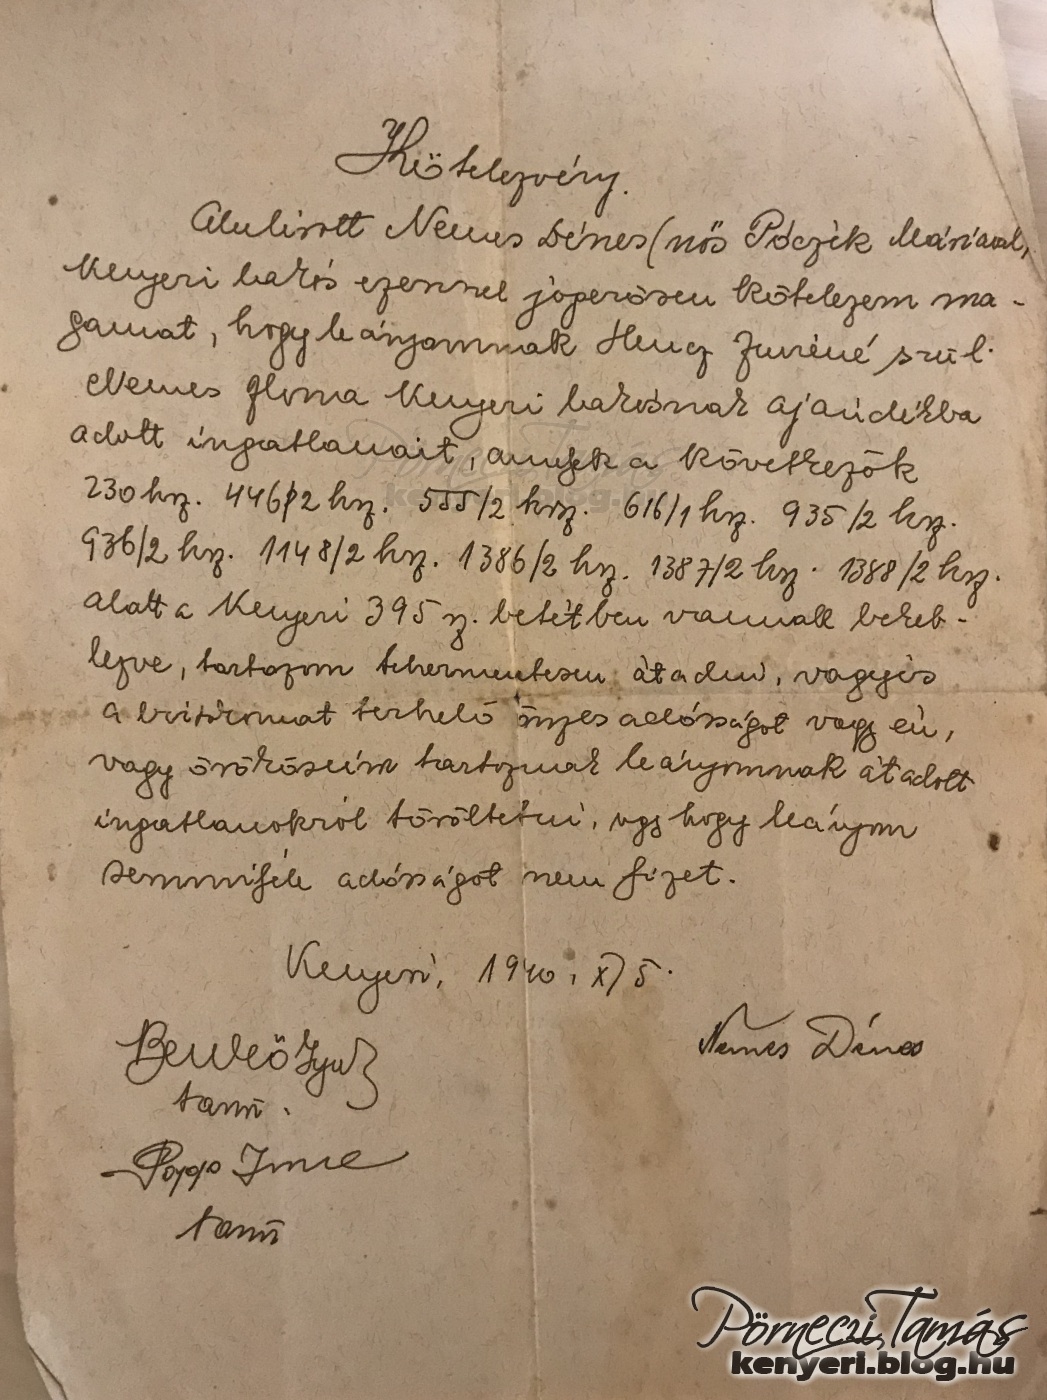 Kötelezvény.
Alulirott Nemes Dénes (nős Póczik Máriával,
Kenyeri lakós ezennel jogerősen kötelezem ma-
gamat, hogy leányomnak Hencz Imréné szül.
Nemes Ilona Kenyeri lakósnak ajándékba
adott ingatlanait, amelyek a következők
230 hsz. 446/2 hsz. 555/2 hrsz. 616/1 hsz. 935/2 hsz.
936/2 hsz. 1148/2 hsz. 1386/2 hsz. 1387/2 hsz. 1388/2 hsz.
alatt a Kenyeri 395 sz. betétben vannak bekeb-
lezve, tartozom tehermentesen átadni, vagyis
a birtokomat terhelő összes adósságot vagy én,
vagy örököseim tartoznak leányomnak átadolt
ingatlanokról töröltetni, ugy hogy leányom
semmiféle adósságot nem fizet.
Kenyeri, 1940. X) 5.
Nemes Dénes
Benkő Gyul
tanú.
Papp Imre
tanú
Pörneczi Tamás
kenyeri.blog.hu